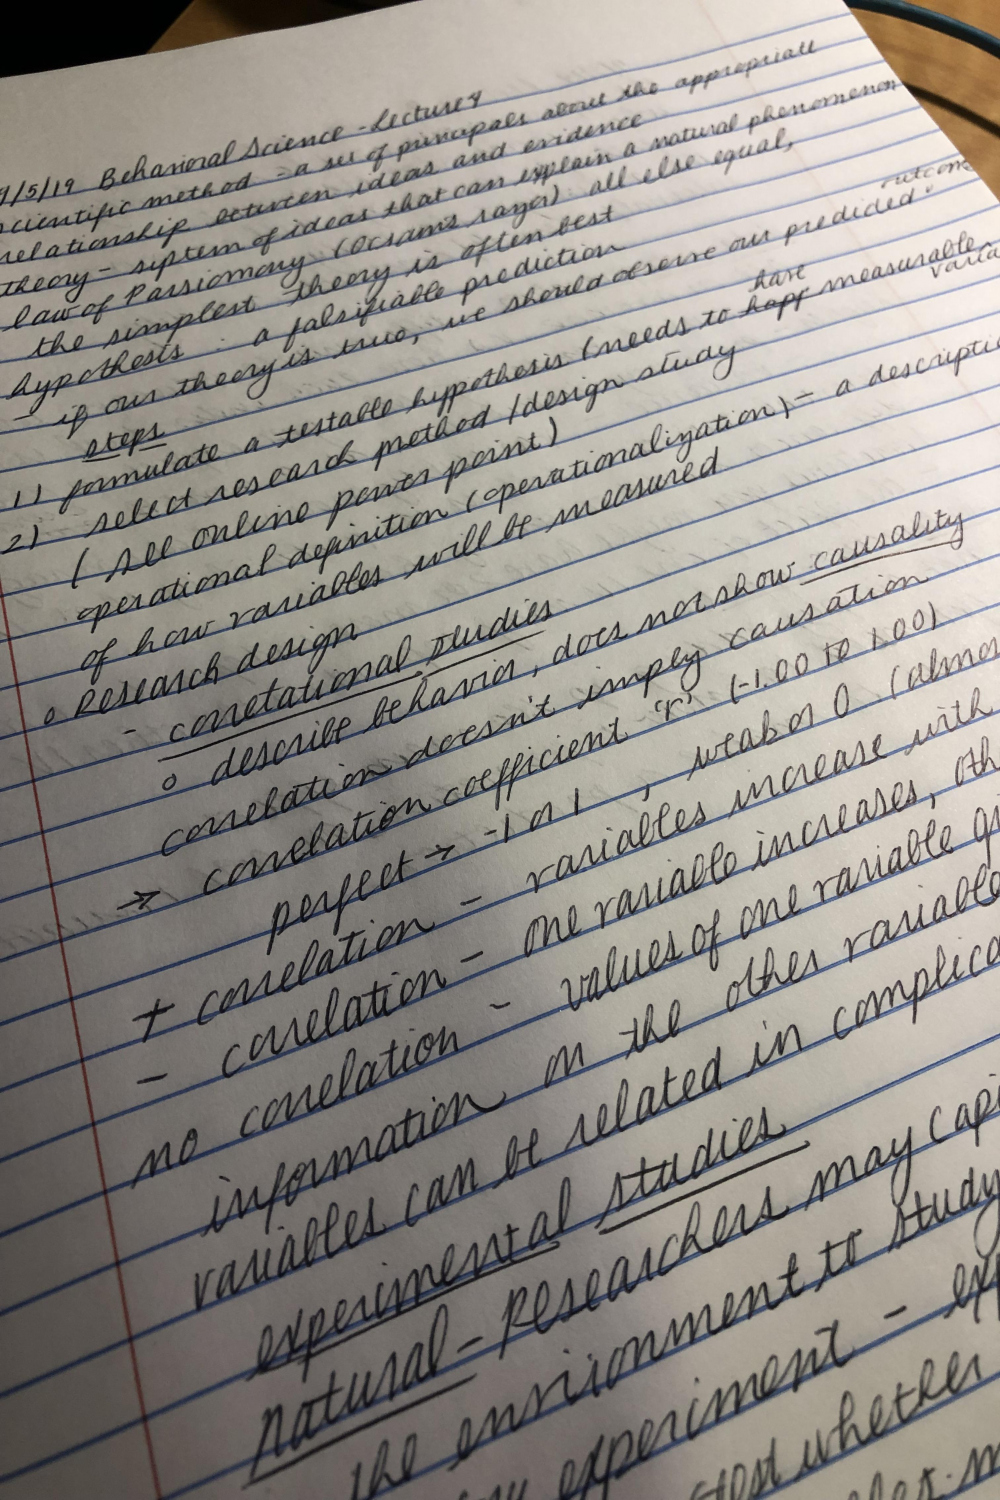 9/5/19 Behavioral Science - Lecture 4
scientific method - a set of principals about the appropriate
relationship between ideas and evidence
theory - system of ideas that can explain a natural phenomenon
law of Passiomony (Ocsam's razor) all else equal,
the simplest theory is often best
hypothesis : a falsifiable prediction
- if our theory is true, we should observe our predicted outcome"
steps
1) formulate a testable hypothesis (needs to have measurable varia
2) select research method / design study
( All online power point)
operational definition (operationalization) - a descriptio
of how variables will be measured
o Research design
- correlational studies
o describe behavior, does not show causality
correlation doesn't imply causation
→ correlation coefficient "r" (-1.00 to 1.00)
perfect → -1 or 1 , weak or 0 (almos
+ correlation - variables increase with
- correlation - one variable increases, oth
no correlation - values of one variable gi
information on the other variable
variables can be related in complica
experimental studies
natural - Researchers may capi
the environment to study
experiment - exp
test whether